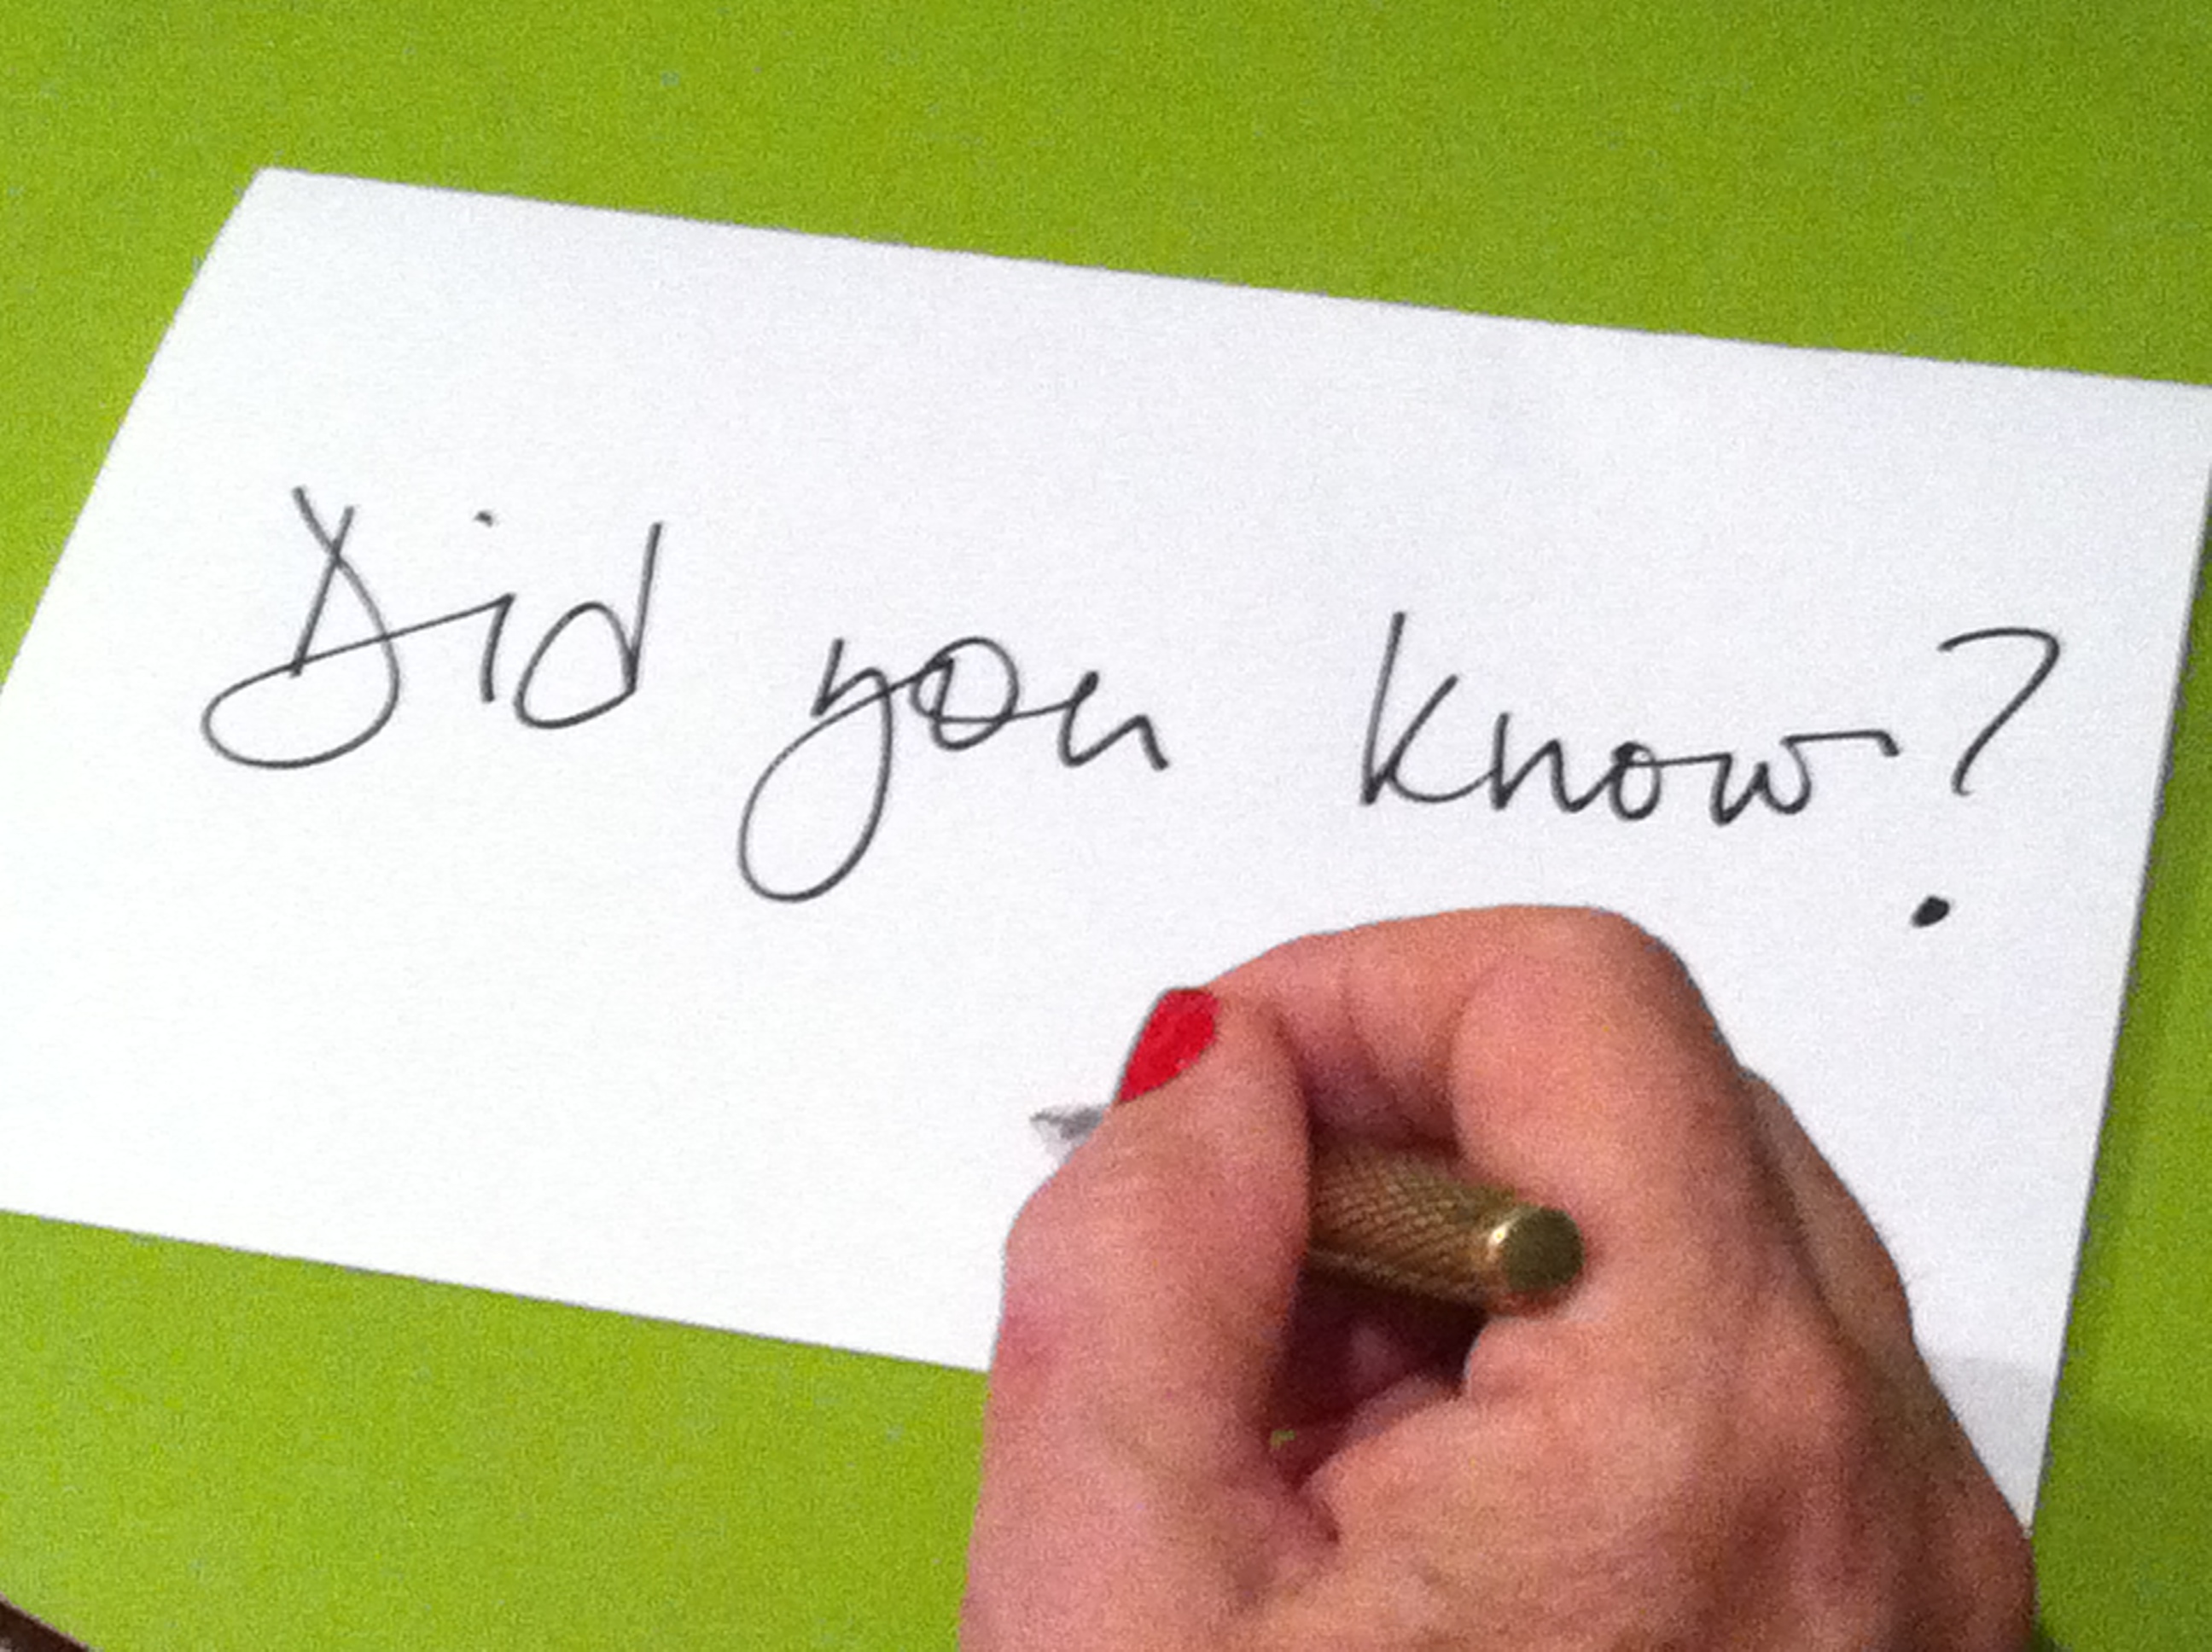 Did you know?